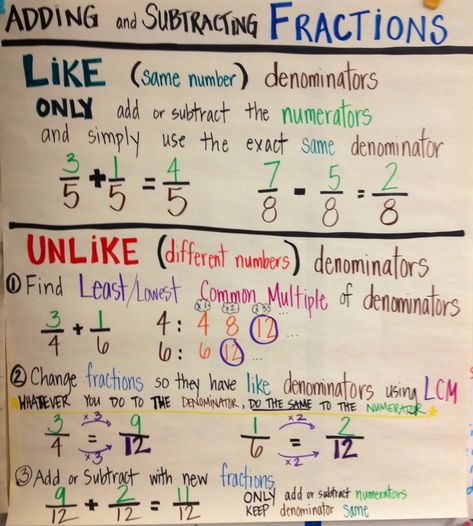 ADDING and SUBTRACTING FRACTIONS
LIKE (same number) denominators
ONLY add or subtract the numerators
and simply use the exact same denominator
3/5 + 1/5 = 4/5 7/8 - 5/8 = 2/8
UNLIKE (different numbers) denominators
① Find Least/Lowest Common Multiple of denominators
x1 x2 x3
3/4 + 1/6 4: 4 8 12 ...
6: 6 12 ...
② Change fractions so they have like denominators using LCM
WHATEVER YOU DO TO THE DENOMINATOR, DO THE SAME TO THE NUMERATOR
x3 x2
3/4 = 9/12 1/6 = 2/12
x3 x2
③ Add or Subtract with new fractions
9/12 + 2/12 = 11/12 ONLY add or subtract numerators
KEEP denominator same